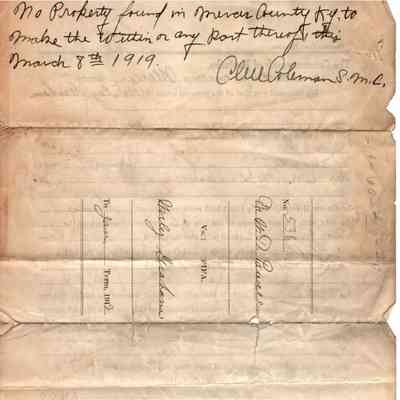 No Property found in Mercer County Ky. to
make the within or any part thereof this
March 8th 1919.
Clell Coleman S.M.C.
No. 53
Dr. W. D. Powell
Vs.: FI FA.
Herly Graham
To June Term, 191